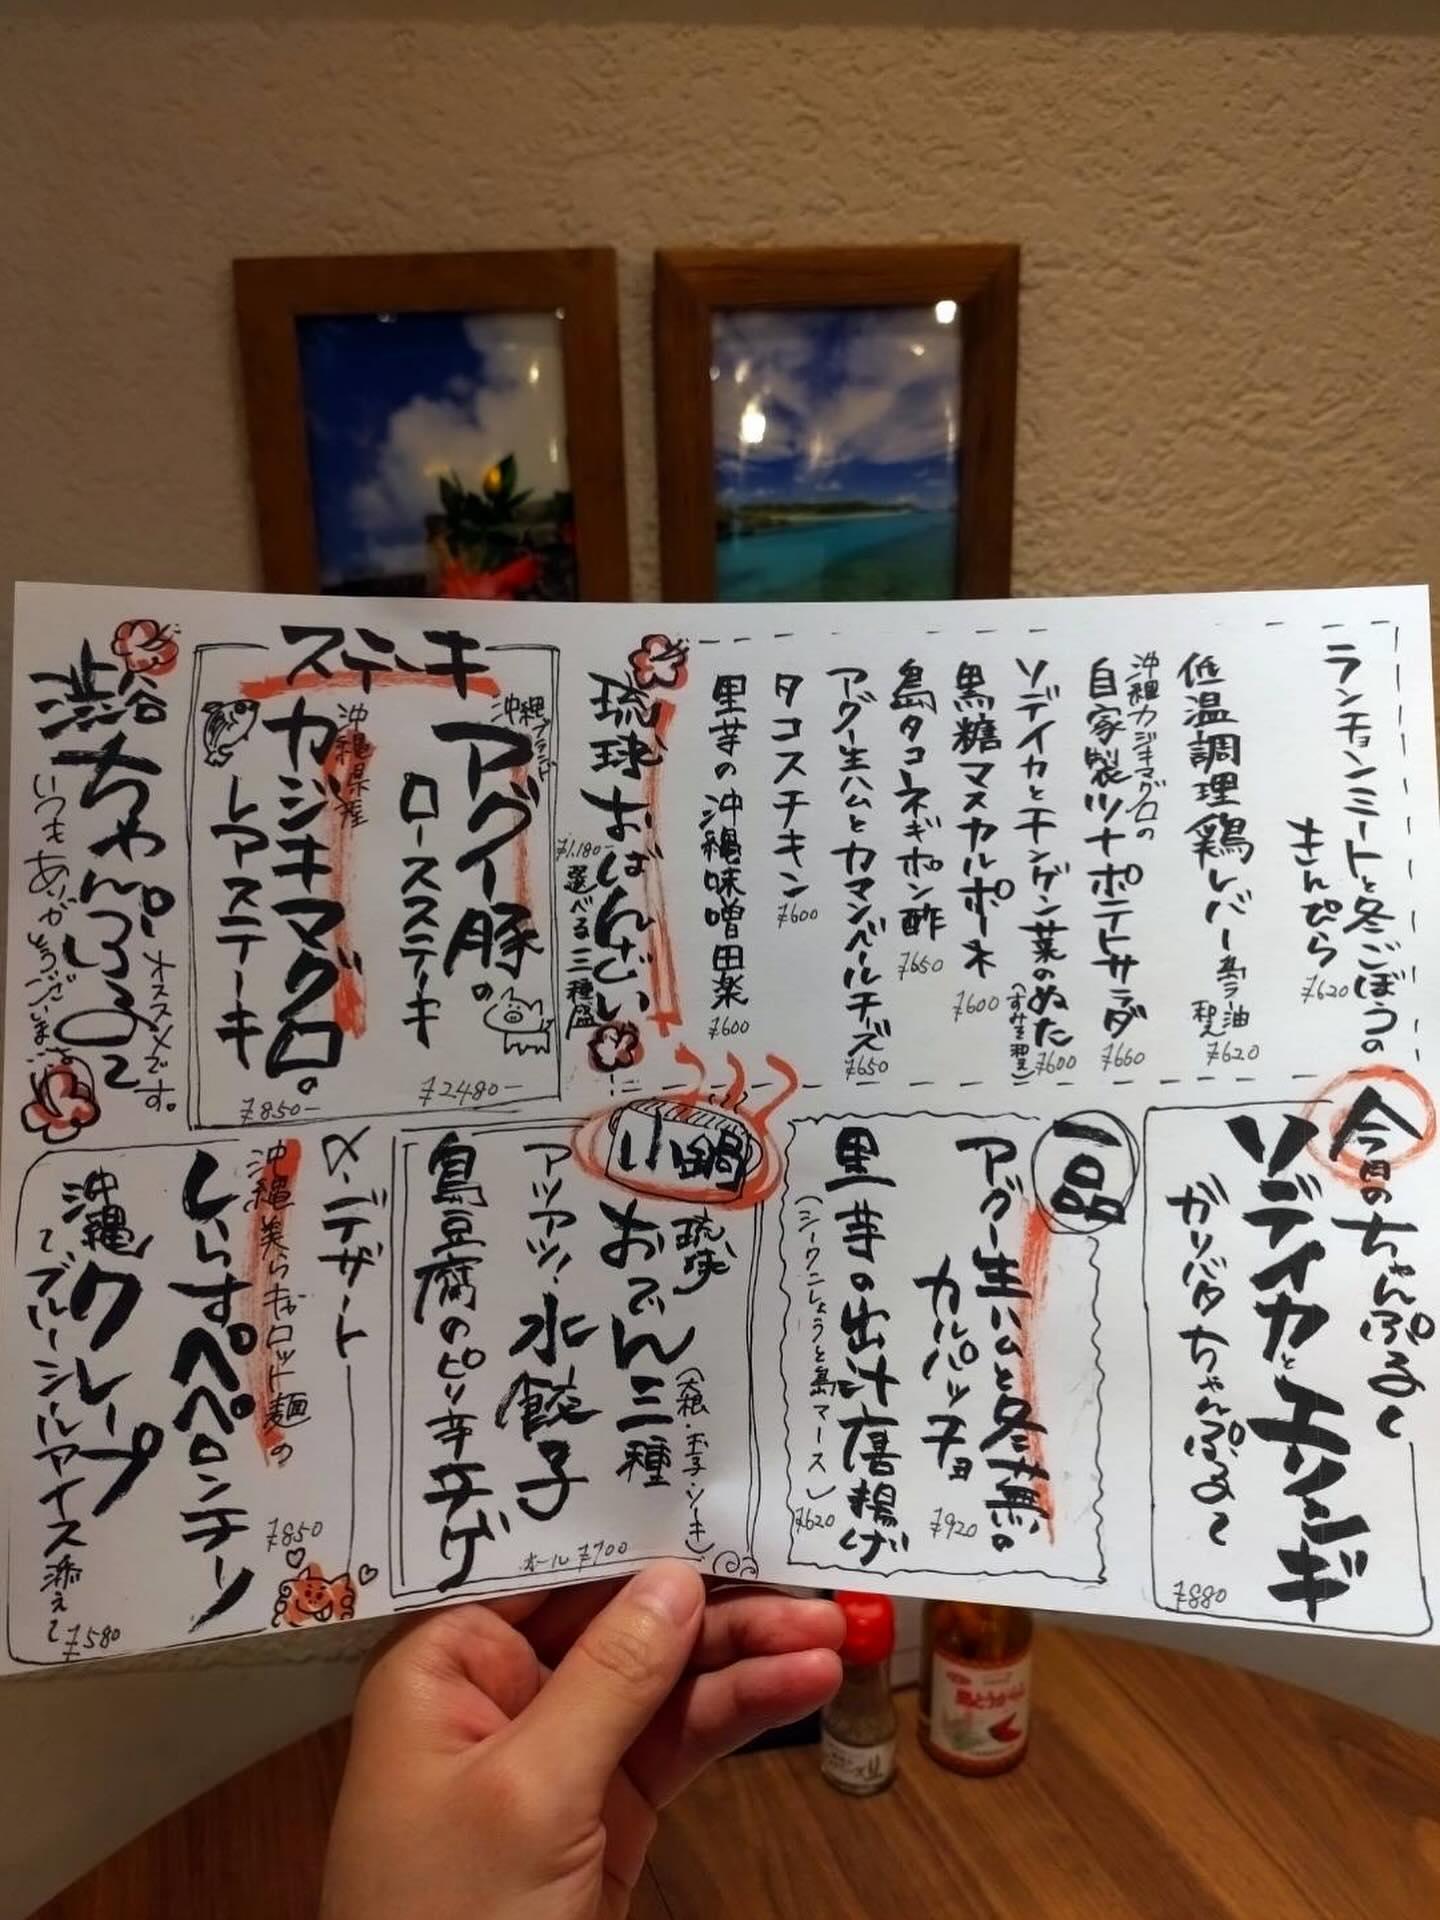 渋谷ちゃんぷるーて
オススメです。
いつもありがとうございます
ステーキ
沖縄ブランド
アグー豚の
ロースステーキ
¥2480-
沖縄県産
カジキマグロ。
レアステーキ
¥850-
琉球おばんざい
¥1,180-
選べる三種盛
ランチョンミートと冬ごぼうの
きんぴら
¥620
低温調理鶏レバー
島ラー油
和え
¥620
沖縄カジキマグロの
自家製ツナポテトサラダ
¥660
ソデイカとチンゲン菜のぬた
¥600
黒糖マスカルポーネ
¥600
島タコネギポン酢
¥650
アグー生ハムとカマンベールチーズ
¥650
タコスチキン
¥600
里芋の沖縄味噌田楽
¥600
今月のちゃんぷるー
ソデイカとエリンギ
ガリバタちゃんぷるーて
¥880
一品
アグー生ハムと冬蕪の
カルパッチョ
¥920
里芋の出汁唐揚げ
(シークワーサーこしょうと島マース)
¥620
小鍋
琉球
おでん三種
(大根・玉子・ソーキ)
アツアツ!水餃子
島豆腐のピリ辛チゲ
オール ¥700
〆・デザート
沖縄美らキャロット麺の
しらすペペロンチーノ
¥850
沖縄クレープ
ブルーシールアイス添えて
¥580